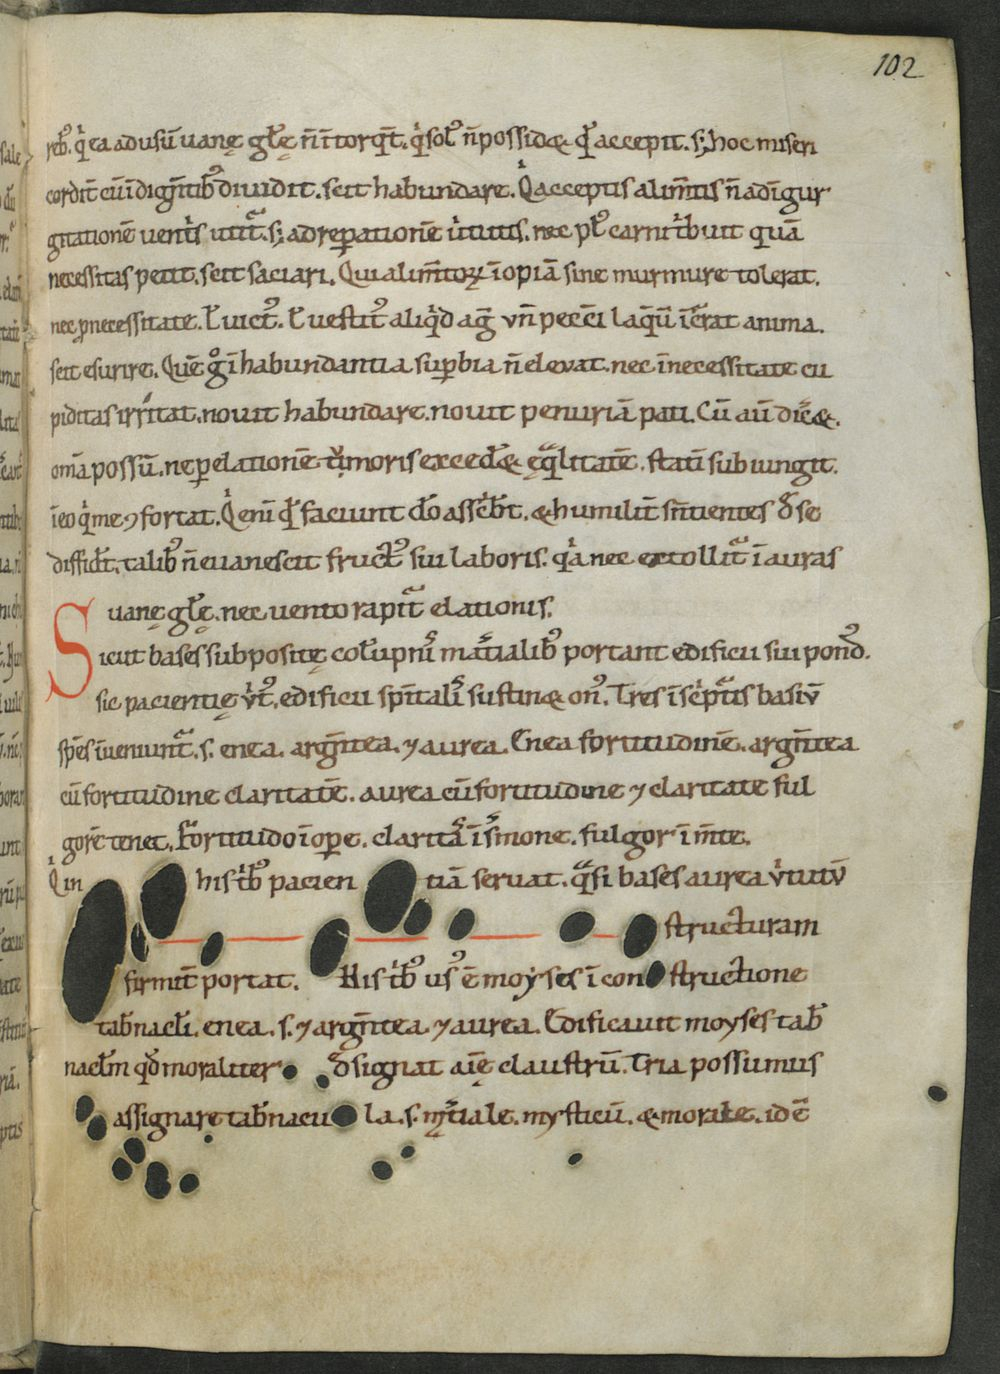 102
reb᷒. qͥ ea ad usū uanę gl̄ę n̄ ītorq̄t. qͥ sol᷒ n̄ possid& qd̄ accepit. s; hoc miseri
cordit̄ cū īdigētib᷒ diuidit. scit habundare. Qͥ acceptis alim̄tis n̄ ad īgur
gitationē uentͥs utitͣ. s; ad reꝑationē uͥtutis. nec pl᷒ carni tͥbuit quā
necessitas petit. scit saciari. Qui alim̄toꝝ īopiā sine murmure tolerat.
nec ꝓ necessitate. l̄ uict᷒. l̄ uestit᷒ aliqͥd agit vn̄ peccī laq̄ū īcͣrat anima.
scit esurire. Quē gͦ ī habundantia suꝑbia n̄ eleuat. nec ī necessitate cu
piditas irͥritat. nouit habundare. nouit penuriā pati. Cū aū dic̄&.
om̄a possū. ne ꝑ elationē tͥmoris exced̄& ęqͣlitatē. statī subiungit.
ī eo qͥ me ⁊fortat. Qͥ enī qd̄ faciunt dō ascͥbt̄. & humilit̄ sn̄tientes d̄ se
diffid̄t. talib᷒ n̄ euanescit fruct᷒ sui laboris. qͥa nec extollitͣ ī auras
uanę gl̄ę. nec uento rapitͣ elationis.
Sicut bases subpositę colūpnis mat̄ialib᷒ portant edificii sui pond᷒.
sic pacientię uͥt᷒. edificii spīťalis sustin& on᷒. Tres ī scͥptͣis basiū
spēs īueniuntͣ. s. enea. argn̄tea. ⁊ aurea. Enea fortitudinē. argn̄tea
cū fortitudine claritatē. aurea cū fortitudine ⁊ claritate ful
gorē tenet. Fortitudo ī oꝑe. claritas ī s̄mone. fulgor ī m̄te.
Qͥ in his tͥb᷒ pacien tiā seruat. qͣsi bases aurea uͥtutū
structuram
firmit̄ portat. His tͥb᷒ us᷒ ē moyses ī con structione
tab̄nacl̄i. enea. s. ⁊ argn̄tea. ⁊ aurea. Edificauit moyses tab̄
nacl̄m qd̄ moraliter d̄signat aīę claustrū. Tria possumus
assignare tab̄nacu la. s. mat̄iale. mysticū. & morale. id ē